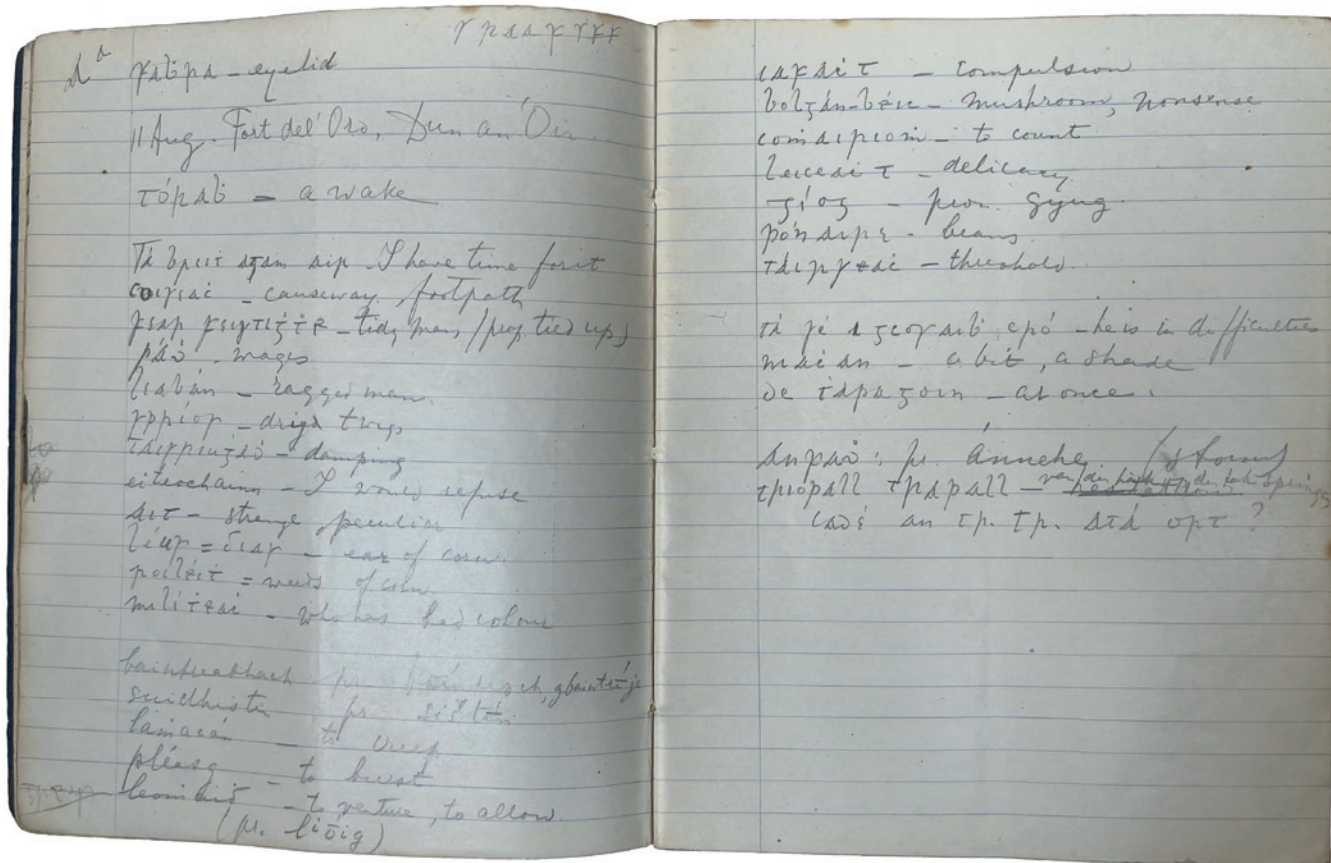 faḃra - eyelid
11 Aug. Fort del' Oro, Dun an Óir
tóraḃ = a wake
Tá breiṫ agam air - I have time for it
causeway, footpath
fear feistiġṫe - tidy man, (prop. tied up)
páḋ - wages
liabán - ragged man
spríos - dried twigs
taisriuġaḋ - damping
eiteochainn - I would refuse
ait - strange peculiar
léas = dias - ear of corn
= weeds of corn
mílíṫeaċ - who has bad colour
baintreabhach pr.
suidhistin pr.
lámacán - to creep
pléasg - to burst
- to venture, to allow
(pr. lióig)
- compulsion
bolgán-béic - mushroom, nonsense
coṁairiom - to count
leiceait - delicacy
gíog - pron. gyug
pónaire - beans
táirseaċ - threshold
tá sé i gcosaiḃ cró - he is in difficulties
- a bit, a shade
de ṫapa goin - at once.
anraḋ: pr. ánnehe (storm)
triopall trapall -
cadé an tr. tr. atá ort ?